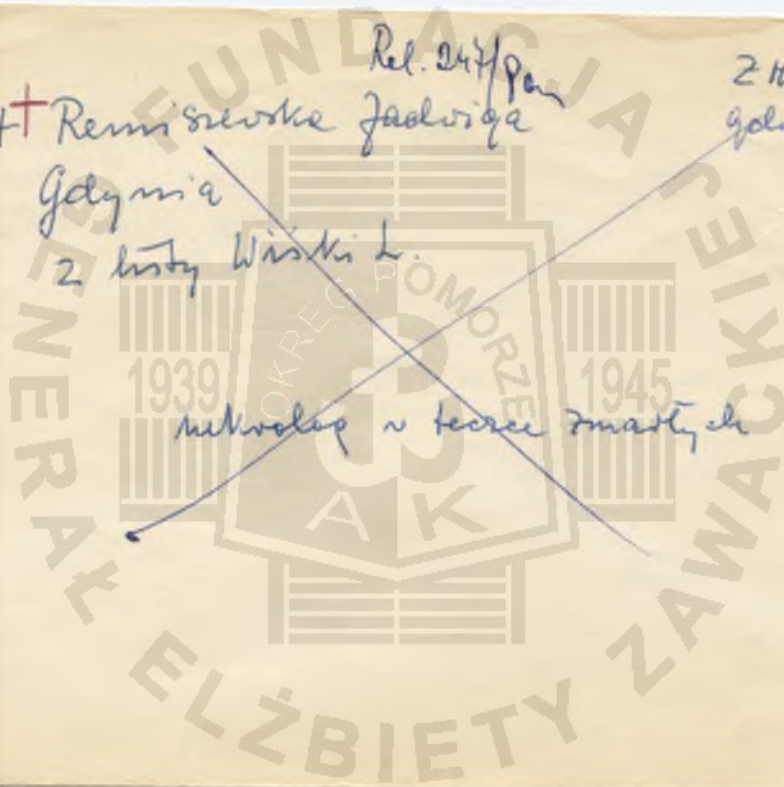 Rel. 247/Pom
+ Remiszewska Jadwiga
Gdynia
z listy
nekrolog w teczce zmarłych
FUNDACJA GENERAŁ ELŻBIETY ZAWACKIEJ
OKRĘG POMORZE
1939
1945
AK